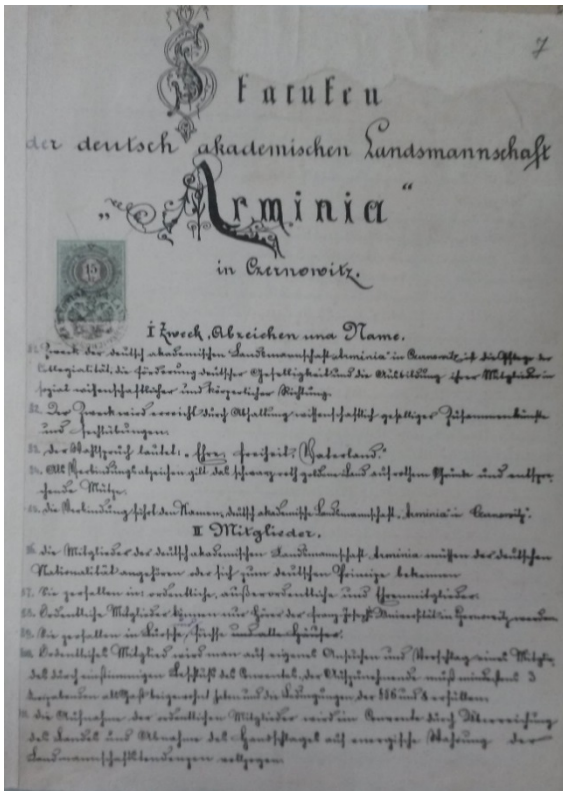 7
Statuten
der deutsch akademischen Landsmannschaft
„Arminia“
in Czernowitz.
15
I Zweck, Abzeichen und Name.
§1. Zweck der deutsch akademischen Landsmannschaft „Arminia“ in Czernowitz ist die Pflege der
Collegialität, die Förderung deutscher Geselligkeit und die Ausbildung ihrer Mitglieder in
sozial wissenschaftlicher und körperlicher Richtung.
§2. Der Zweck wird erreicht durch Abhaltung wissenschaftlich geselliger Zusammenkünfte
und Fechtübungen.
§3. der Wahlspruch lautet: „Ehre, Freiheit, Vaterland.“
§4. Als Verbindungsabzeichen gilt das schwarz roth goldene Band auf rothem Grunde und entspre-
chende Mütze.
§5. die Verbindung führt den Namen „deutsch akademische Landsmannschaft „Arminia“ in Czernowitz“.
II Mitglieder.
§6. die Mitglieder der deutsch akademischen Landsmannschaft Arminia müssen der deutschen
Nationalität angehören oder sich zum deutschen Principe bekennen
§7. Sie zerfallen in: ordentliche, außerordentliche und Ehrenmitglieder.
§8. Ordentliche Mitglieder können nur Hörer der Franz Josephs Universität in Czernowitz werden
§9. Sie zerfallen in Bursche, Füchse und alte Häuser.
§10. Ordentliches Mitglied wird man auf eigenes Ansuchen und Vorschlag eines Mitglie-
des durch einstimmigen Beschluß des Conventes, der Aufzunehmende muß mindestens 3
als Gast beigewohnt haben und die Bedingungen der §§6 und 8 erfüllen.
die Aufnahme der ordentlichen Mitglieder wird im Convente durch Überreichung
des Bandes und Abnahme des Handschlages auf energische Wahrung der
Landsmannschaftstendenzen vollzogen